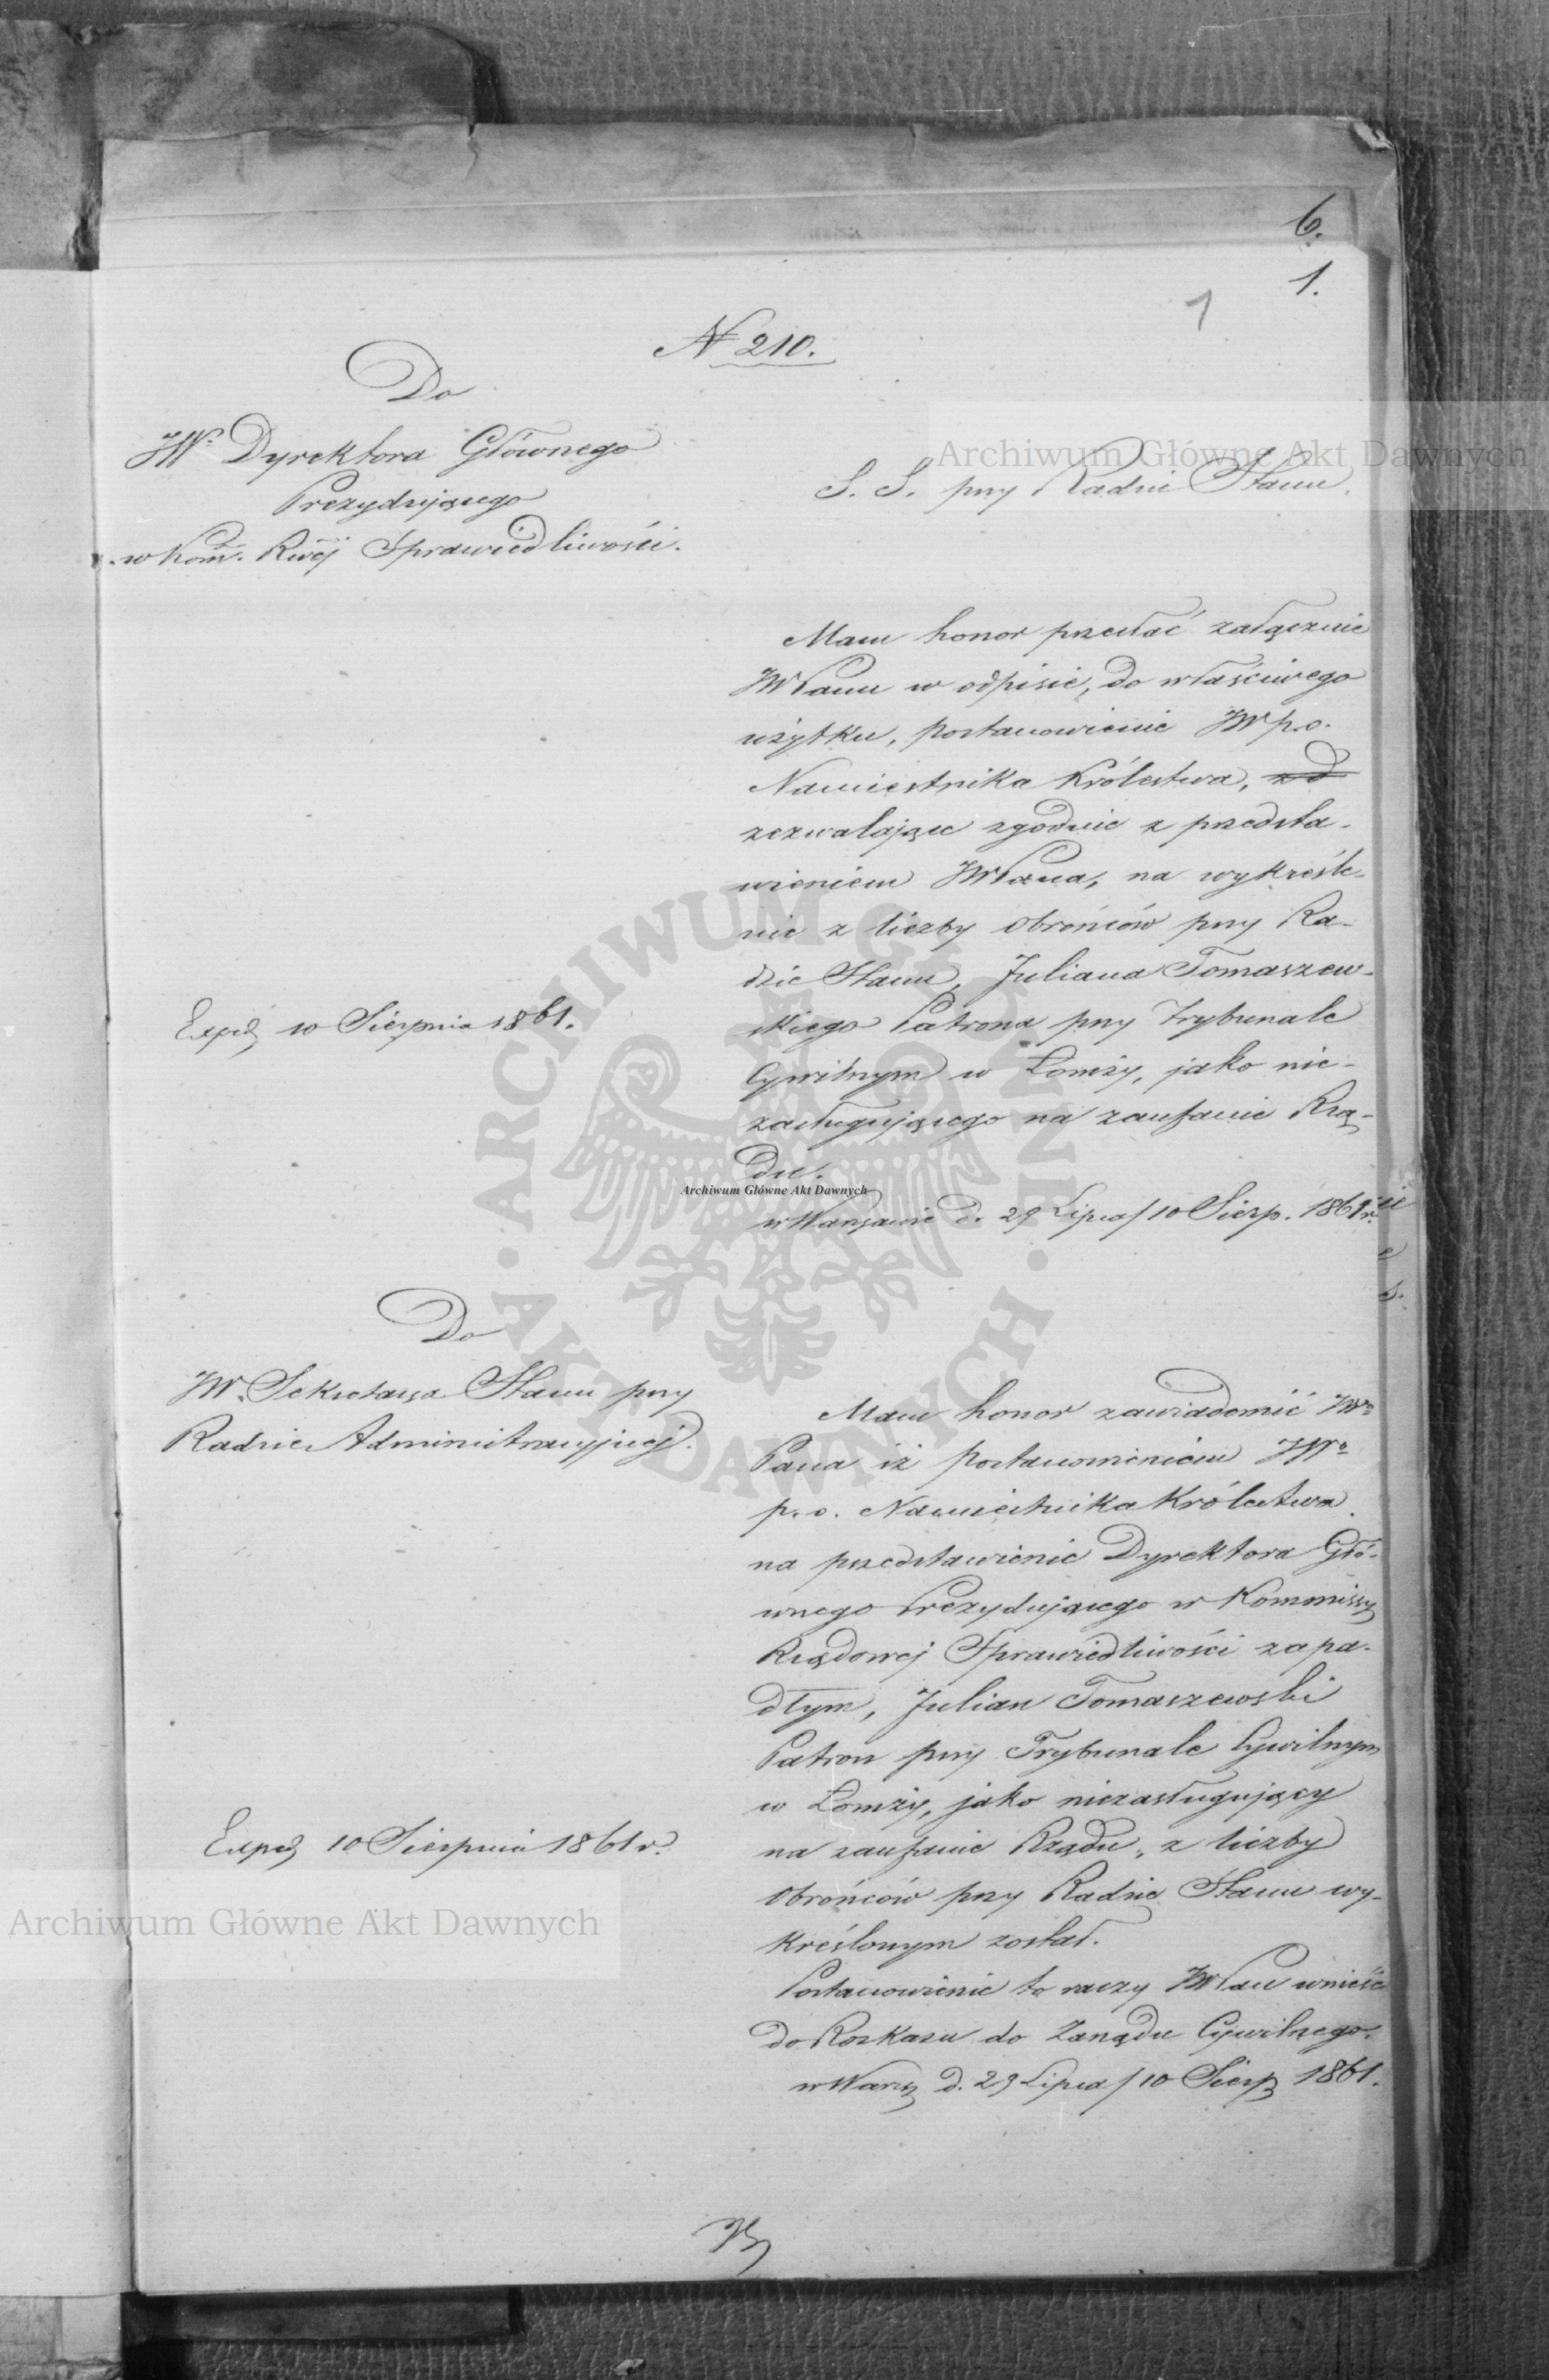 6.
1.
1
N 210.
Do
JW. Dyrektora Głównego
Prezydującego
w Kom. Rwéj Sprawiedliwości.
S. S. przy Radzie Stanu.
Mam honor przesłać załącznie
JWPanu w odpisie, do właściwego
użytku, postanowienie JW p.o.
Namiestnika Królestwa,
zezwalające zgodnie z przedsta-
wieniem JWPana, na wykreśle-
nie z liczby Obrońców przy Ra-
dzie Stanu, Juliana Tomaszew-
skiego Patrona przy Trybunale
Cywilnym w Łomży, jako nie-
zasługującego na zaufanie Rzą-
du.
w Warszawie d. 29 Lipca/10 Sierp. 1861 r.
Exped 10 Sierpnia 1861.
Do
JW. Sekretarza Stanu przy
Radzie Administracyjnej.
Mam honor zawiadomić JWo
Pana iż postanowieniem JWo
p. o. Namiestnika Królestwa
na przedstawienie Dyrektora Głó-
wnego Prezydującego w Kommissy
Rządowej Sprawiedliwości zapa-
dłym, Julian Tomaszewski
Patron przy Trybunale Cywilnym
w Łomży, jako niezasługujący
na zaufanie Rządu, z liczby
Obrońców przy Radzie Stanu wy-
kreślonym został.
Postanowienie to raczy JWPan wnieść
do Rozkazu do Zarządu Cywilnego.
w Warsz d. 29 Lipca/10 Sierp 1861.
Exped 10 Sierpnia 1861 r.
Archiwum Główne Akt Dawnych
Archiwum Główne Akt Dawnych
Archiwum Główne Akt Dawnych
ARCHIWUM GŁÓWNE · AKT DAWNYCH ·